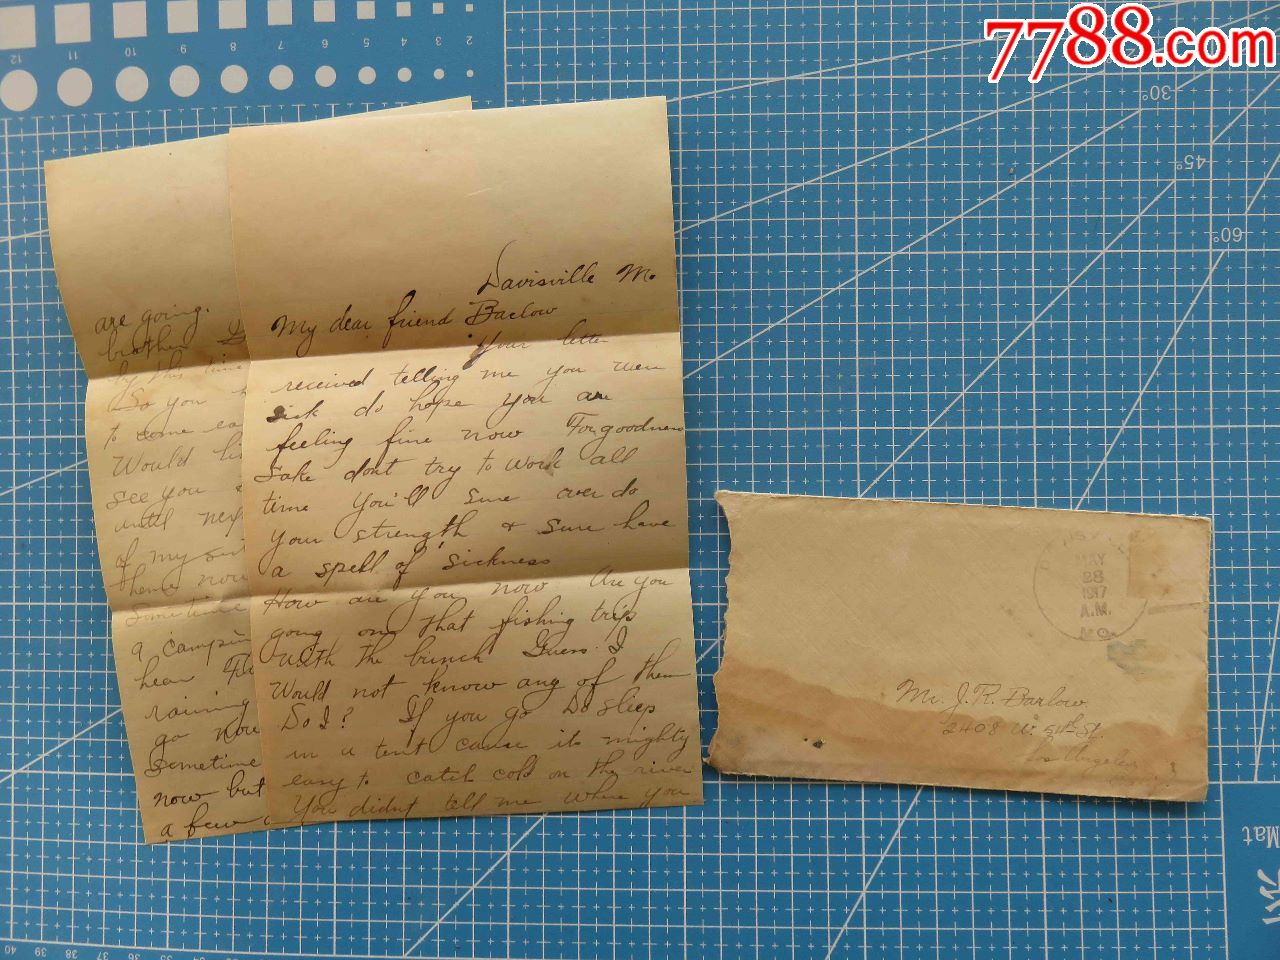 7788.com
12 11 10 9 8 7 6 5 4 3 2
30°
45°
60°
Davisville Mo.
My dear friend Barlow
Your letter
received telling me you were
sick do hope you are
feeling fine now For goodness
Sake dont try to work all
time You'll sure over do
your strength + sure have
a spell of sickness
How are you now Are you
going on that fishing trip
with the bunch Guess I
Would not know any of them
Do I? If you go Do sleep
in a tent cause its mighty
easy to catch cold on the river
You didnt tell me where you
are going.
brother
by this time
So you
to come
Would
see you
until
of my
them now
Sometime
a campin
hear
raining
go now
Sometime
now but
a few
MAY
28
1917
A.M.
MO.
Mr. J. R. Barlow
2408 W. 54th St.
Los Angeles
Mat
40 39 38 37 36 35 34 33